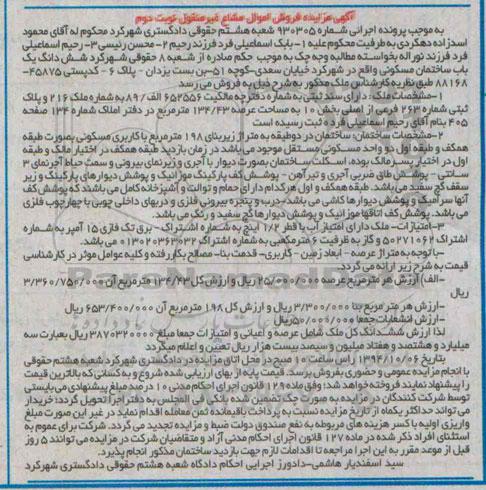 آگهی مزایده فروش اموال مشاع غیرمنقول نوبت دوم
به موجب پرونده اجرائی شماره ۹۳۰۳۰۵ شعبه هشتم حقوقی دادگستری شهرکرد محکوم له آقای محمود
اسدزاده دهکردی به طرفیت محکوم علیه ۱- بابک اسماعیلی فرد فرزند رحیم ۲- محسن رئیسی ۳- رحیم اسماعیلی
فرد فرزند نوراله بخواسته مطالبه وجه چک به موجب حکم صادره از شعبه ۸ حقوقی شهرکرد شش دانگ یک
باب ساختمان مسکونی واقع در شهرکرد خیابان سعدی-کوچه ۵۱-بن بست یزدان - پلاک ۶ - کدپستی ۴۵۸۷۵-
۸۸۱۶۸ طبق نظریه کارشناس ملک مذکور به شرح ذیل به فروش می رسد
۱-مشخصات ملک: دارای سند ثبتی به شماره دفترچه مالکیت ۶۵۲۵۵۶ الف / ۸۹ به شماره ملک ۲۱۶ و پلاک
ثبتی شماره ۲۶۳ فرعی از اصلی بخش ۱۰ به مساحت عرصه ۱۳۴/۴۳ مترمربع در دفتر املاک شماره ۱۳۴ صفحه
۴۰۵ بنام آقای رحیم اسماعیلی فرد ه ثبت رسیده است
۲-مشخصات ساختمان: ساختمان در دوطبقه به متراژ زیربنای ۱۹۸ مترمربع با کاربری مسکونی بصورت طبقه
همکف و طبقه اول دو واحد مسکونی مستقل موجود می باشد در زمان بازدید طبقه همکف در اختیار مالک و طبقه
اول در اختیار پسر مالک بوده، اسکلت ساختمان بصورت دیوار با آجری و زیرنمای بیرونی و سمت حیاط آجرنمای ۳
سانتی - پوشش طاق ضربی آجری و تیرآهن - پوشش کف پارکینگ موزائیک و پوشش دیوارهای پارکینگ و زیر
سقف گچ سفید می باشد. طبقه همکف و اول هرکدام دارای حمام و توالت و آشپزخانه کامل می باشند که پوشش کف
آنها سرامیک و پوشش دیوارها کاشی می باشد-درب و پنجره بیرونی فلزی و دربهای داخلی چوبی با چهارچوب فلزی
می باشد. پوشش کف اتاقها موزائیک و پوشش دیوارها گچ سفید و رنگ می باشد.
۳-امتیازات- ملک دارای امتیاز آب با قطر ۱/۲ اینچ به شماره اشتراک - برق تک فازی ۱۵ آمپر به شماره
اشتراک ۵۰۲۷۱۰۶۲ و گاز به ظرفیت ۶ مترمکعبی به شماره اشتراک ۰۱۳۰۲۰۳۶۳۰۳۲ می باشد.
-با توجه به متراژ عرصه - ابعاد زمین - کاربری- قدمت بنا- مصالح بکار رفته و کلیه عوامل موثر در کارشناسی
قیمت به شرح زیر ارائه می گردد.
-الف) ارزش هر مترمربع عرصه ۲۵/۰۰۰/۰۰۰ ریال و ارزش کل ۱۳۴/۴۳ مترمربع آن ۳/۳۶۰/۷۵۰/۰۰۰
ریال
-ارزش هر متر مربع بنا ۳/۳۰۰/۰۰۰ ریال و ارزش کل ۱۹۸ مترمربع آن ۶۵۳/۴۰۰/۰۰۰ ریال
-ارزش انشعابات جمعا ۵۰/۰۰۰/۰۰۰ ریال
لذا ارزش ششدانگ کل ملک شامل عرصه و اعیانی و امتیازات جمعا مبلغ ۳۸۷۰۳۲۰۰۰۰ ریال بعبارت سه
میلیارد و هشتصد و هفتاد میلیون و سیصد بیست هزار ریال تعیین و اعلام میگردد
بتاریخ ۱۳۹۴/۱۰/۰۶ راس ساعت ۱۰ صبح در محل اتاق مزایده در دادگستری شهرکرد شعبه هشتم حقوقی
با انجام مزایده عمومی و حضوری بفروش برسد. قیمت پایه از بهای ارزیابی شده شروع و به کسانی که بالاترین قیمت
را پیشنهاد نمایند فروخته خواهد شد؛ وفق ماده ۱۲۹ قانون اجرای احکام مدنی ۱۰ درصد مبلغ پیشنهادی می بایستی
توسط شرکت کنندگان در مزایده به صورت چک تضمین شده بانکی فی المجلس به دفتر اجرا تحویل گردد؛ خریدار
می تواند حداکثر یکماه از تاریخ مزایده نسبت به پرداخت باقیمانده ثمن معامله اقدام نماید در غیر این صورت مبلغ
واریزی اولیه با کسر هزینه های مربوطه به نفع صندوق دولت ضبط و مزایده تجدید می گردد. شرکت برای عموم به
استثنای افراد ذکر شده در ماده ۱۲۷ قانون اجرای احکام مدنی آزاد و متقاضیان شرکت در مزایده می توانند ۵ روز
قبل از موعد مقرر به این اجرا مراجعه تا اقدامات لازم جهت بازدید ساختمان مذکور انجام پذیرد.
سید اسفندیار هاشمی-دادورز اجرایی احکام دادگاه شعبه هشتم حقوقی دادگستری شهرکرد